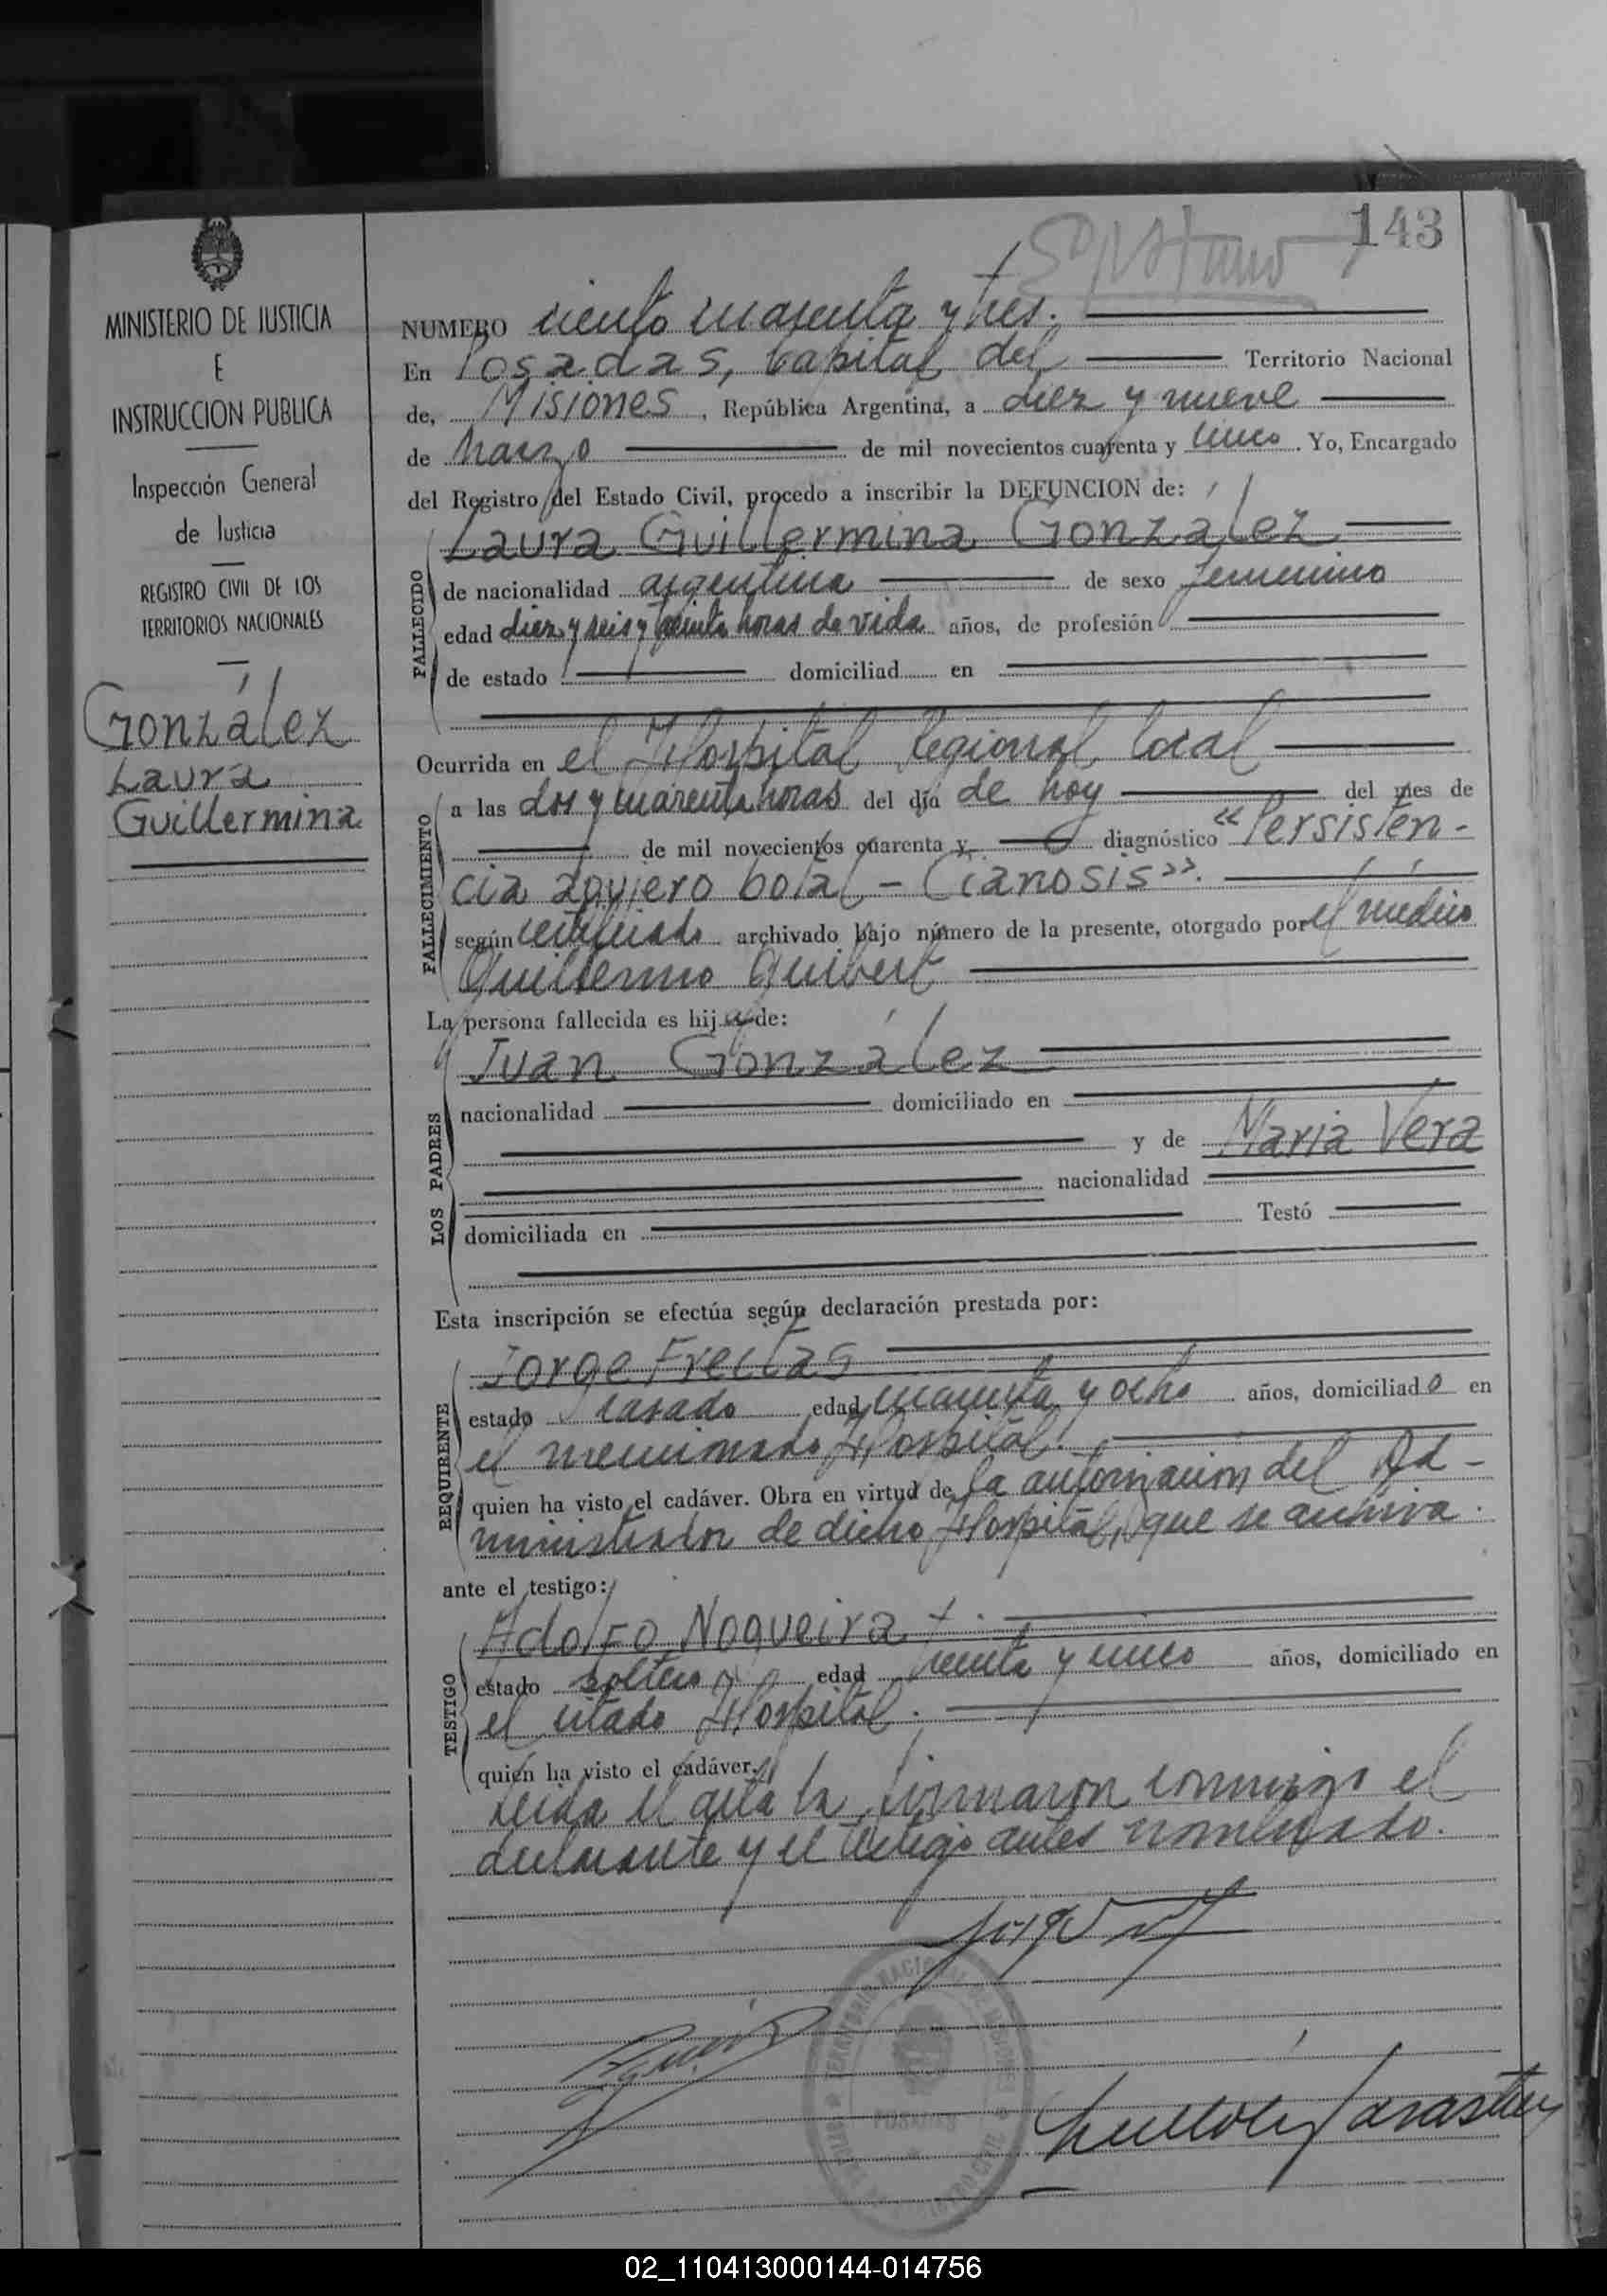 143
MINISTERIO DE JUSTICIA
E
INSTRUCCION PUBLICA
Inspección General
de Justicia
REGISTRO CIVIL DE LOS
TERRITORIOS NACIONALES
González
Laura
Guillermina
NUMERO ciento cuarenta y tres.
En Posadas, Capital del Territorio Nacional
de, Misiones, República Argentina, a diez y nueve
de Marzo de mil novecientos cuarenta y cinco. Yo, Encargado
del Registro del Estado Civil, procedo a inscribir la DEFUNCION de:
Laura Guillermina González
FALLECIDO
de nacionalidad argentina de sexo femenino
edad diez y seis y treinta horas de vida años, de profesión
de estado domiciliad en
Ocurrida en el Hospital Regional local
FALLECIMIENTO
a las dos y cuarenta horas del día de hoy del mes de
de mil novecientos cuarenta y diagnóstico "Persisten-
cia agujero botal - Cianosis".
según certificado archivado bajo número de la presente, otorgado por el médico
Guillermo Guibert
La persona fallecida es hija de:
LOS PADRES
Juan González
nacionalidad domiciliado en
y de María Vera
nacionalidad
domiciliada en Testó
Esta inscripción se efectúa según declaración prestada por:
REQUIRENTE
Jorge Freitas
estado casado edad cuarenta y ocho años, domiciliado en
el mencionado Hospital.
quien ha visto el cadáver. Obra en virtud de la autorización del Ad-
ministrador de dicho Hospital, que se archiva.
ante el testigo:
TESTIGO
Adolfo Nogueira
estado soltero edad treinta y cinco años, domiciliado en
el citado Hospital.
quién ha visto el cadáver.
Leida el acta la firmaron conmigo el
declarante y el testigo antes nombrado.
02_110413000144-014756